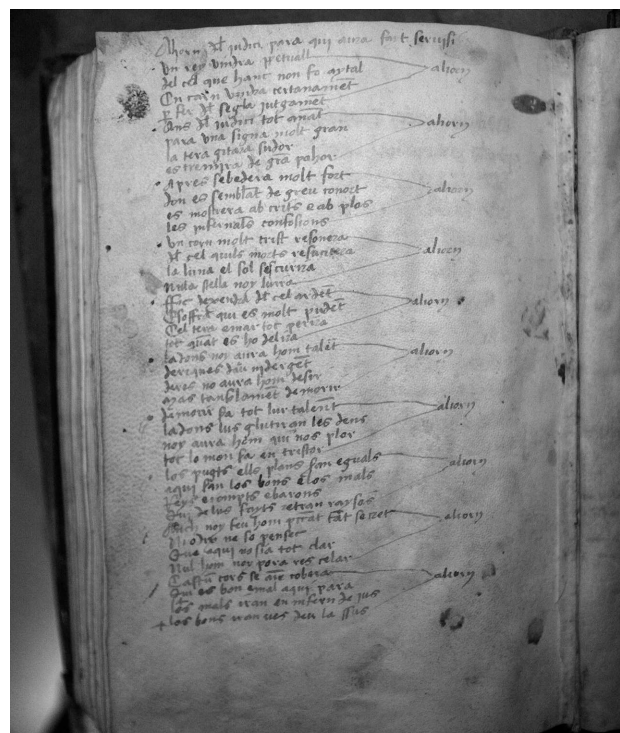 Al iorn del iudici para qui aura fet servisi
Un rey vindra perpetuall
del cel que hanc non fo aytal
En carn vindra certanament
per fer del segle iutgament aliorn
Ans del iudici tot anat
para una signa molt gran
la tera gitara sudor
es tremira de gra pahor aliorn
Apres sebedera molt fort
don es semblat de greu conort
es mostrera ab crits e ab plos
les infernals confusions aliorn
Un corn molt trist resonera
del cel quils morts resucitera
la luna el sol sescurira
nula stella noy lurra aliorn
ffoc dexendra del cel ardet
Esoffra qui es molt pudet
Cel tera e mar tot perira
tot quat es ho delira aliorn
ladons noy aura hom talet
de riqueses daur ni dergét
deres no aura hom desir
mas tansolamét de morir aliorn
de morir fa tot lur talent
ladons lus glutiran les dens
noy aura hom qui nos plor
tot lo mon fa en tristor aliorn
los pugts ells plans san eguals
aqui san los bons elos mals
Reys e compts e barons
Qui de lus fayts retran raysos aliorn
Auch noy feu hom pecat tat secret
Ni o dix ne so penset
Que aqui no sia tot clar
Nul hom noy pora res celar aliorn
Cascu cors se que cobera
Qui es bon e mal aqui para
Los mals iran en infern de jus
los bons iran ves deu la ssus aliorn